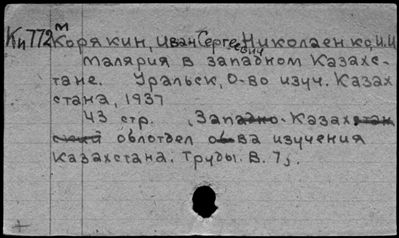 Кп772 м
Корякин, Иван Сергеевич, Николаенко, И.И
Малярия в западном Казахс-
тане. Уральск, О-во изуч. Казах
стана, 1937
43 стр. (Западно-Казахстан
ский облотдел о-ва изучения
Казахстана. Труды. В. 7).